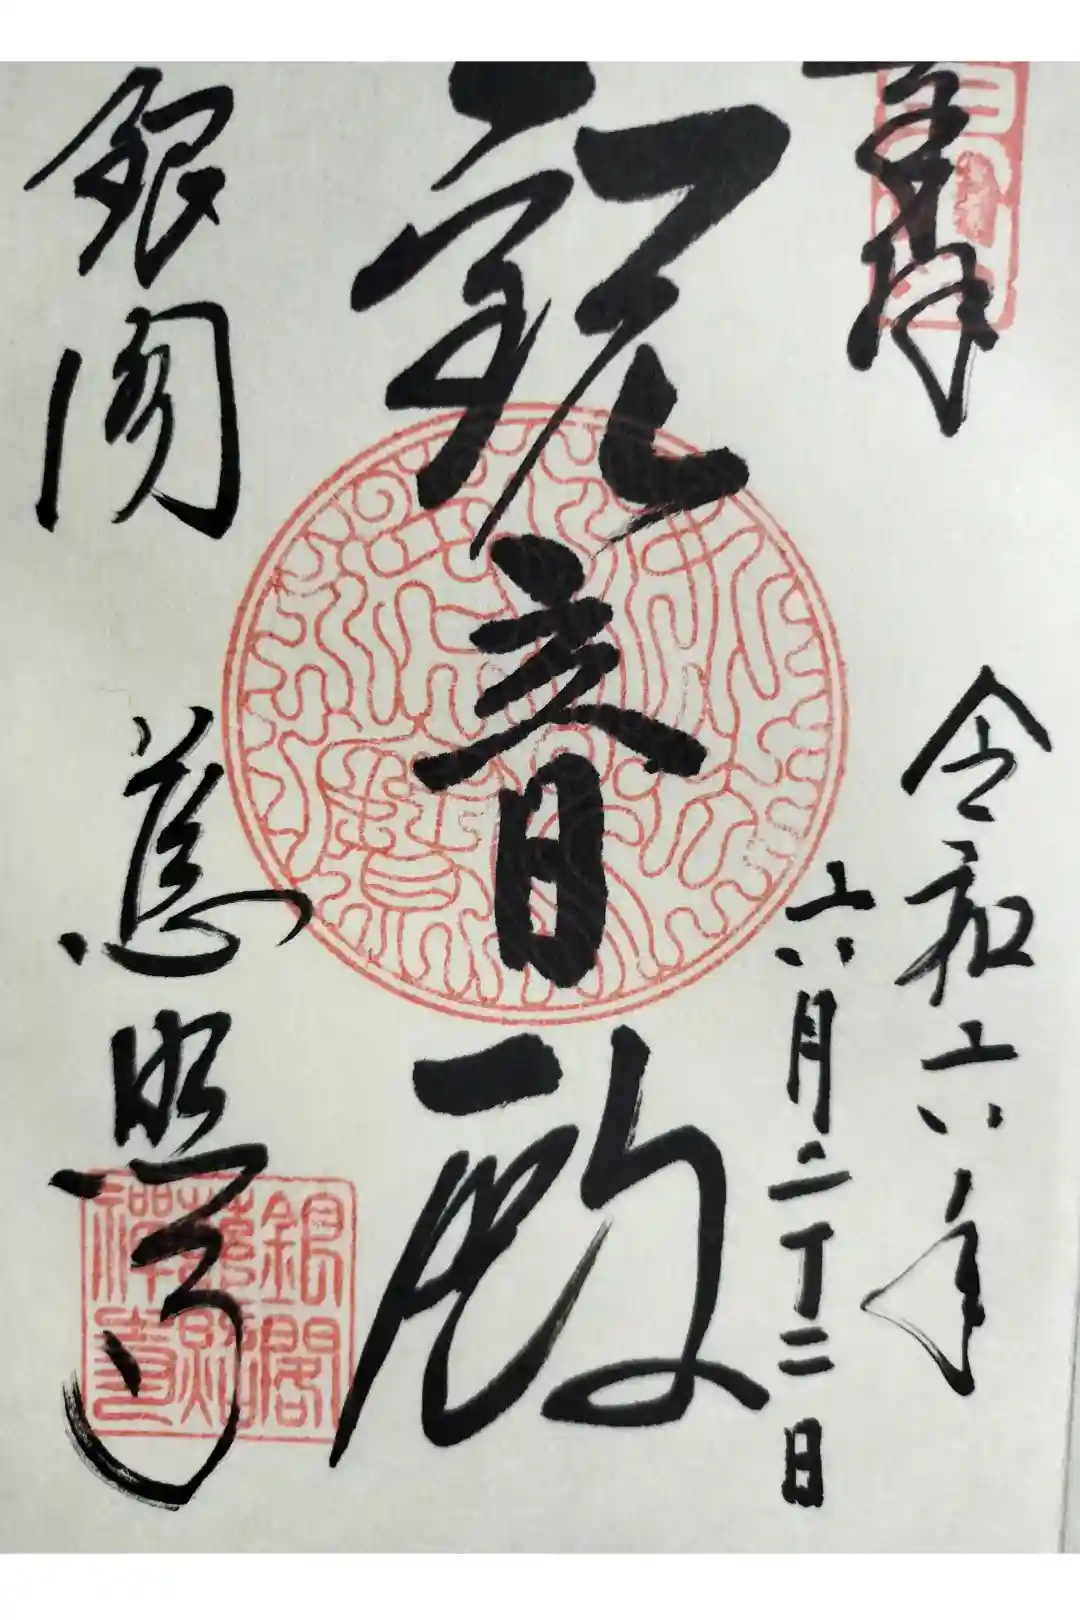 奉拝
令和六年
六月二十二日
観音殿
銀閣
慈照寺
銀閣
慈照
禅寺